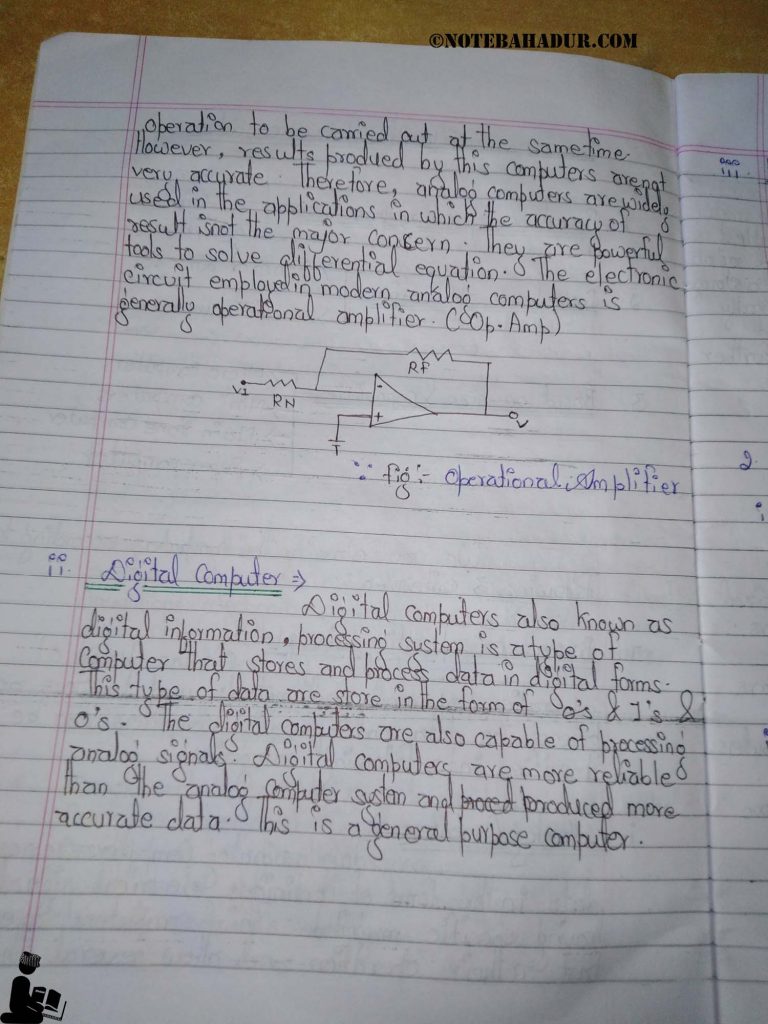 ©NOTEBAHADUR.COM
operation to be carried out at the sametime.
However, results produed by this computers are not
very accurate. Therefore, analog computers are widely
used in the applications in which the accuracy of
result is not the major concern. They are powerful
tools to solve differential equation. The electronic
circuit employed in modern analog computers is
generally operational amplifier. (Op.Amp)
RF
VI
RN
-
+
V
∵ fig:- Operational Amplifier
ii. Digital Computer ⇒
Digital computers also known as
digital information, processing system is a type of
Computer that stores and process data in digital forms.
This type of data are store in the form of 0's & 1's &
0's. The digital computers are also capable of processing
analog signals. Digital computers are more reliable
than the analog Computer system and produced more
accurate data. This is a general purpose computer.
iii.
2.